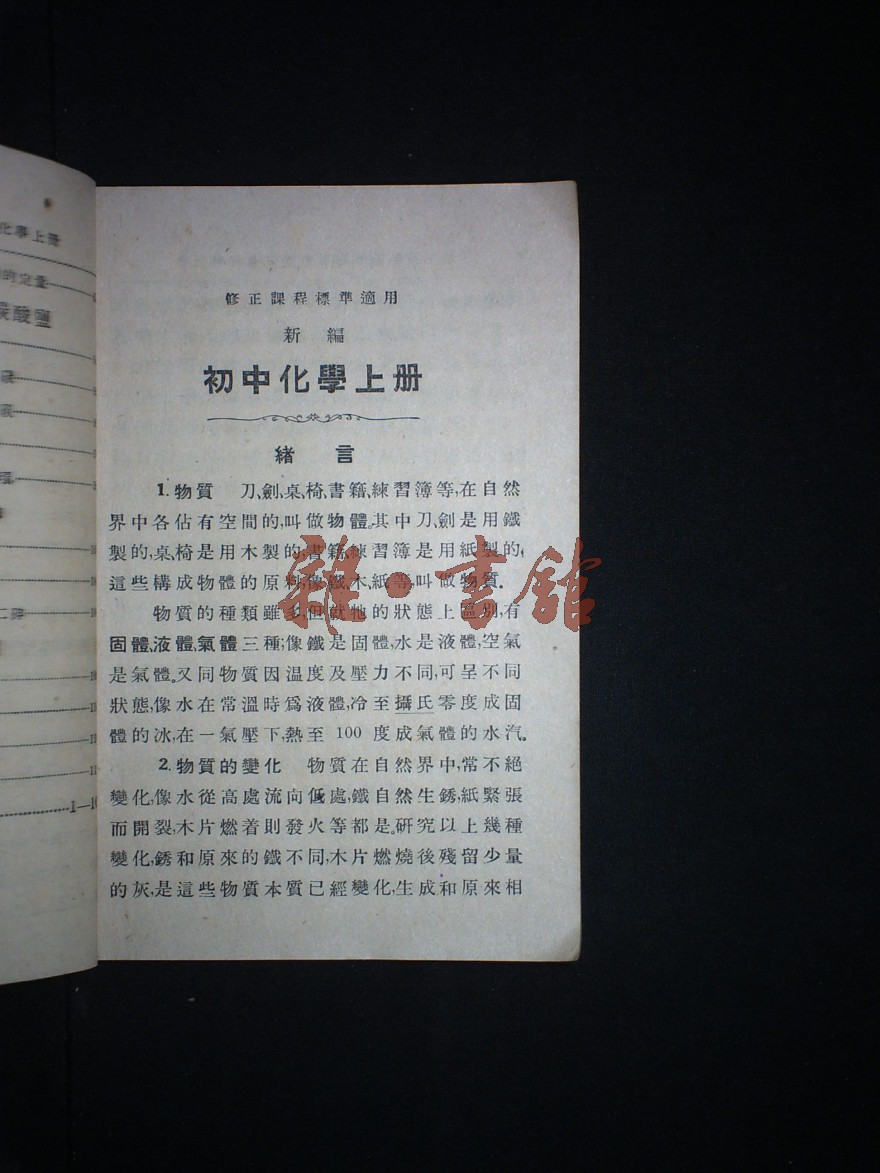 化學上册
的定量
碳酸鹽
1—1
修正課程標準適用
新編
初中化學上册
緒言
1. 物質 刀、劍、桌、椅、書籍、練習簿等,在自然
界中各佔有空間的,叫做物體。其中刀、劍是用鐵
製的,桌、椅是用木製的,書籍、練習簿是用紙製的,
這些構成物體的原料,像鐵、木、紙等,叫做物質。
物質的種類雖多,但就牠的狀態上區別,有
固體、液體、氣體三種;像鐵是固體,水是液體,空氣
是氣體。又同物質因温度及壓力不同,可呈不同
狀態,像水在常溫時爲液體,冷至攝氏零度成固
體的冰,在一氣壓下,熱至 100 度成氣體的水汽。
2. 物質的變化 物質在自然界中,常不絕
變化,像水從高處流向低處,鐵自然生銹,紙緊張
而開裂,木片燃着則發火等都是。研究以上幾種
變化,銹和原來的鐵不同,木片燃燒後殘留少量
的灰,是這些物質本質已經變化,生成和原來相
雜·書館